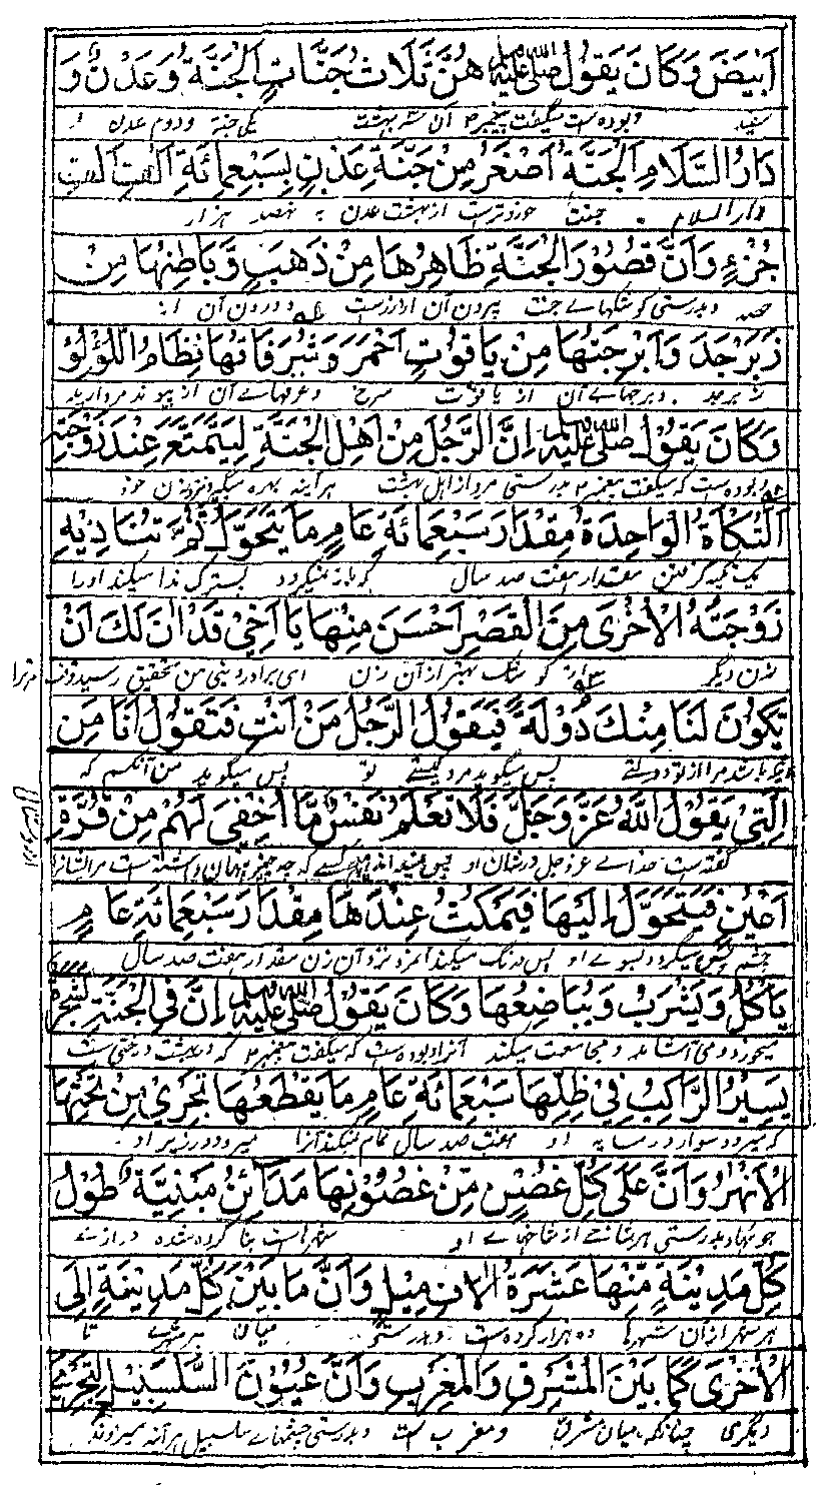 اَبْيَضَ وَكَانَ يَقُولُ صلى الله عليه وسلم هُنَّ ثَلَاثُ جَنَّاتٍ اَلْجَنَّةُ وَعَدْنٌ وَ
سفید و بوده است میگفت پیغمبر آن سه بهشت یکی جنة و دوم عدن و
دَارُ السَّلَامِ اَلْجَنَّةُ اَصْغَرُ مِنْ جَنَّةِ عَدْنٍ بِسَبْعِمِائَةِ اَلْفِ اَلْفِ
دار السلام جنت خوردترست از بهشت عدن به هفصد هزار
جُزْءٍ وَاَنَّ قُصُوْرَ الْجَنَّةِ ظَاهِرُهَا مِنْ ذَهَبٍ وَّبَاطِنُهَا مِنْ
حصه و بدرستی کوشکهای جنت بیرون آن از زرست و درون آن از
زَبَرْجَدَ وَاَبْرِجَتُهَا مِنْ يَاقُوْتٍ اَحْمَرَ وَشُرَفَاتُهَا نِظَامُ اللُّؤْلُؤِ
زبرجد و برجهای آن از یاقوت سرخ و غرفهای آن از پیوند مروارید
وَكَانَ يَقُوْلُ صلى الله عليه وسلم اِنَّ الرَّجُلَ مِنْ اَهْلِ الْجَنَّةِ لَيَتَمَتَّعُ عِنْدَ زَوْجَتِهِ
و بوده است که میگفت پیغمبر بدرستی مرد از اهل بهشت هر آینه بهره میگیرد نزد زن خود
اَلتُّكَاَةَ الْوَاحِدَةَ مِقْدَارَ سَبْعِمِائَةِ عَامٍ مَا يَتَحَوَّلُ ثُمَّ تُنَادِيْهِ
یک تکیه گرفتن مقدار هفت صد سال که باز نمیگردد پستر که ندا میکند او را
زَوْجَتُهُ الْاُخْرٰى مِنَ الْقَصْرِ اَحْسَنَ مِنْهَا يَا اَخِيْ قَدْ اٰنَ لَكَ اَنْ
زن دیگر از کوشک بهتر از آن زن ای برادر دینی من بتحقیق رسید وقت مر ترا
يَكُوْنَ لَنَا مِنْكَ دُوْلَةٌ فَيَقُوْلُ الرَّجُلُ مَنْ اَنْتِ فَتَقُوْلُ اَنَا مِنَ
که باشد مرا از تو دولتی پس میگوید مرد کیستی تو پس میگوید من آنکسم که
الَّتِيْ يَقُوْلُ اللّٰهُ عَزَّ وَجَلَّ فَلَا تَعْلَمُ نَفْسٌ مَّا اُخْفِيَ لَهُمْ مِنْ قُرَّةِ
گفته است خدای عز و جل در شان او پس نمیداند هیچ کسی که چه چیز پنهان داشته است مر ایشانرا
اَعْيُنٍ فَيَتَحَوَّلُ اِلَيْهَا فَيَمْكُثُ عِنْدَهَا مِقْدَارَ سَبْعِمِائَةِ عَامٍ
چشم پس میگردد بسوی او پس درنگ میکند آنمرد نزد آن زن مقدار هفت صد سال
يَاْكُلُ وَيَشْرَبُ وَيُبَاضِعُهَا وَكَانَ يَقُوْلُ صلى الله عليه وسلم اِنَّ فِي الْجَنَّةِ لَشَجَرَةً
میخورد و می آشامد و مجامعت میکند آنرا و بوده است که میگفت پیغمبر که در بهشت درختی ست
يَسِيْرُ الرَّاكِبُ فِيْ ظِلِّهَا سَبْعَمِائَةِ عَامٍ مَا يَقْطَعُهَا تَجْرِيْ مِنْ تَحْتِهَا
که میرود سوار در سایه او هفت صد سال تمام نمیکند آنرا میرود در زیر او
الْاَنْهٰرُ وَاَنَّ عَلٰى كُلِّ غُصْنٍ مِّنْ غُصُوْنِهَا مَدَائِنُ مَبْنِيَّةٌ طُوْلُ
جویها و بدرستی بر هر شاخی از شاخهای او شهر هاست بنا کرده شده درازی
كُلِّ مَدِيْنَةٍ مِّنْهَا عَشَرَةُ اٰلَافِ مِيْلٍ وَاَنَّ مَا بَيْنَ كُلِّ مَدِيْنَةٍ اِلَى
هر شهر از آن شهرها ده هزار کروه است و بدرستی میان هر شهر تا
الْاُخْرٰى كَمَا بَيْنَ الْمَشْرِقِ وَالْمَغْرِبِ وَاَنَّ عُيُوْنَ السَّلْسَبِيْلِ لَتَجْرِيْ
دیگری چنانکه میان مشرق و مغرب است و بدرستی چشمهای سلسبیل هر آینه میروند